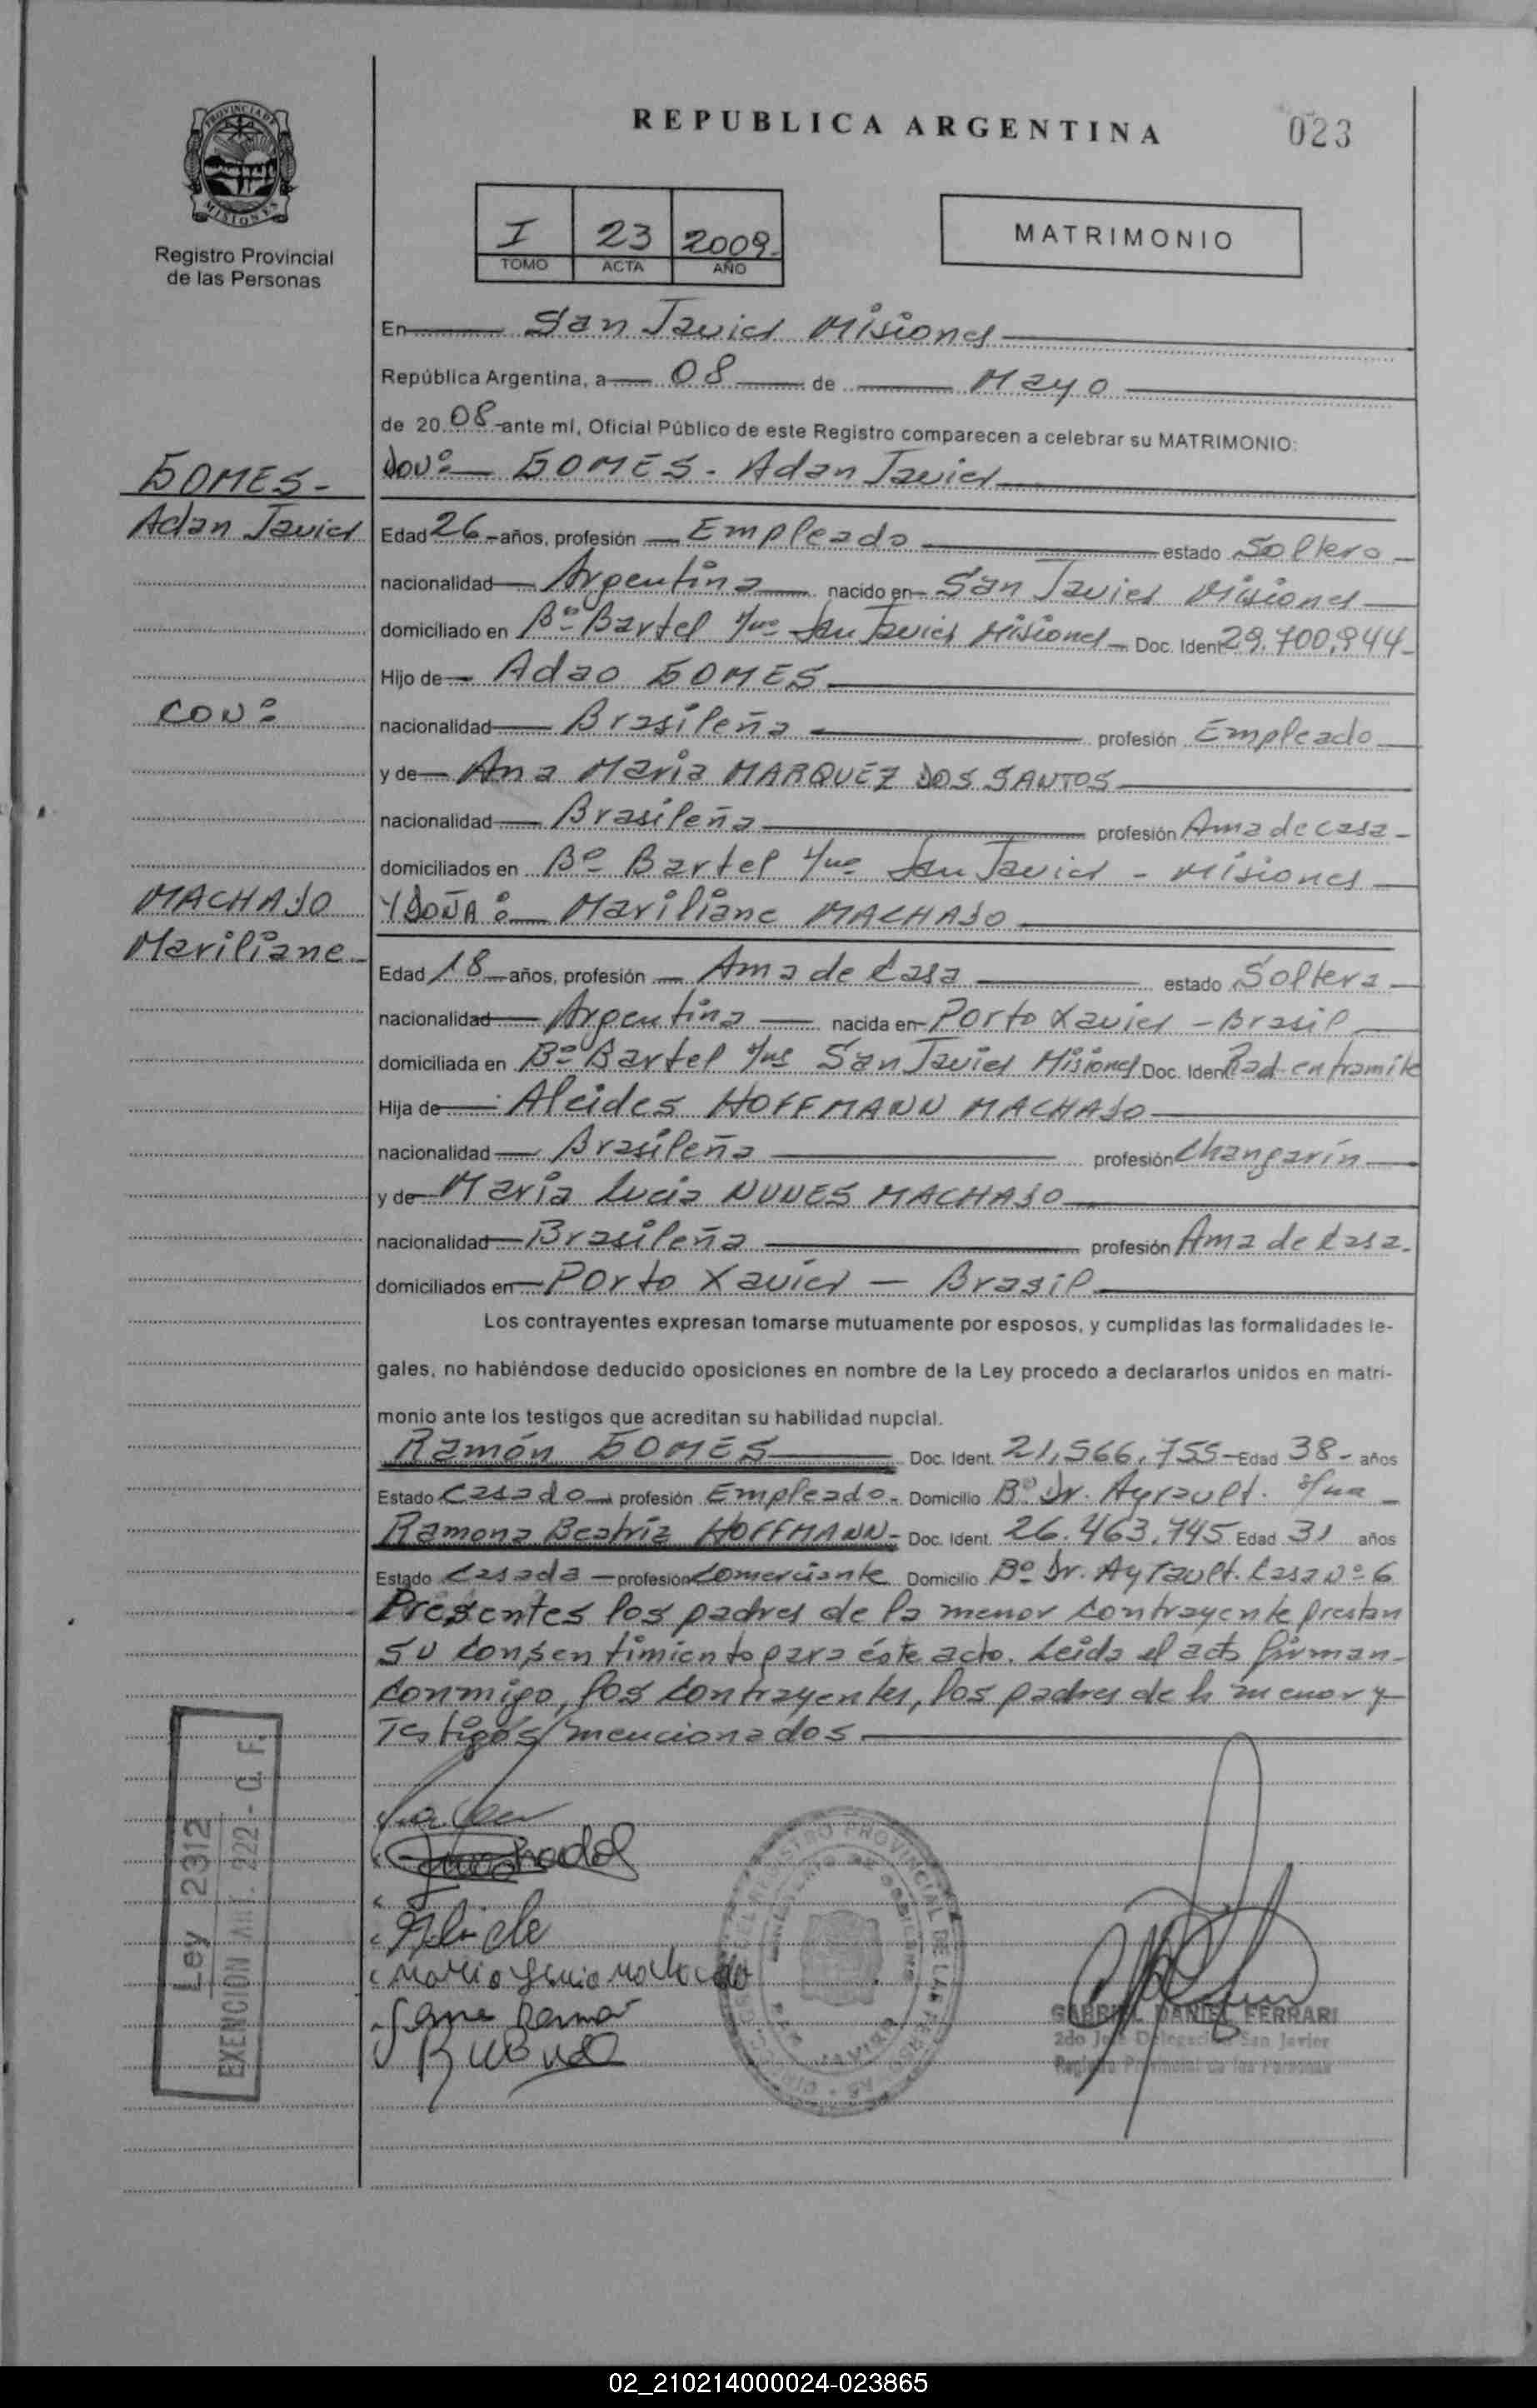 REPUBLICA ARGENTINA
023
PROVINCIA DE MISIONES
Registro Provincial
de las Personas
I 23 2009.
TOMO ACTA AÑO
MATRIMONIO
En San Javier Misiones
República Argentina, a 08 de Mayo
de 20 08 -ante mí, Oficial Público de este Registro comparecen a celebrar su MATRIMONIO:
GOMES -
DON: GOMES - Adan Javier
Adan Javier
Edad 26 -años, profesión Empleado estado Soltero
nacionalidad Argentina nacido en San Javier Misiones
domiciliado en Bº Bartel San Javier Misiones Doc. Ident 29.700.844
Hijo de Adao GOMES
CON:
nacionalidad Brasileña profesión Empleado
y de Ana Maria MARQUEZ DOS SANTOS
nacionalidad Brasileña profesión Ama de casa
domiciliados en Bº Bartel San Javier - Misiones
MACHADO
Y DOÑA: Mariliane MACHADO
Mariliane
Edad 18 años, profesión Ama de Casa estado Soltera
nacionalidad Argentina nacida en Porto Xavier - Brasil
domiciliada en Bº Bartel San Javier Misiones Doc. Ident Rad. en tramite
Hija de Alcides HOFFMANN MACHADO
nacionalidad Brasileña profesión Changarín
y de Maria Lucia NUNES MACHADO
nacionalidad Brasileña profesión Ama de Casa.
domiciliados en Porto Xavier - Brasil
Los contrayentes expresan tomarse mutuamente por esposos, y cumplidas las formalidades le-
gales, no habiéndose deducido oposiciones en nombre de la Ley procedo a declararlos unidos en matri-
monio ante los testigos que acreditan su habilidad nupcial.
Ramón GOMES Doc. Ident. 21.566.755 Edad 38 - años
Estado Casado profesión Empleado - Domicilio Bº Dr. Ayrault.
Ramona Beatríz HOFFMANN - Doc. Ident. 26.463.745 Edad 31 años
Estado Casada profesión Comerciante Domicilio Bº Dr. Ayrault. Casa Nº 6
Presentes los padres de la menor contrayente prestan
su consentimiento para éste acto. Leida el acta firman
conmigo, los contrayentes, los padres de la menor y
Testigos mencionados
Ley 2312
EXENCION Art. 222 - C. F.
GABRIEL DANIEL FERRARI
2do Jefe Delegación San Javier
Registro Provincial de las Personas
02_210214000024-023865